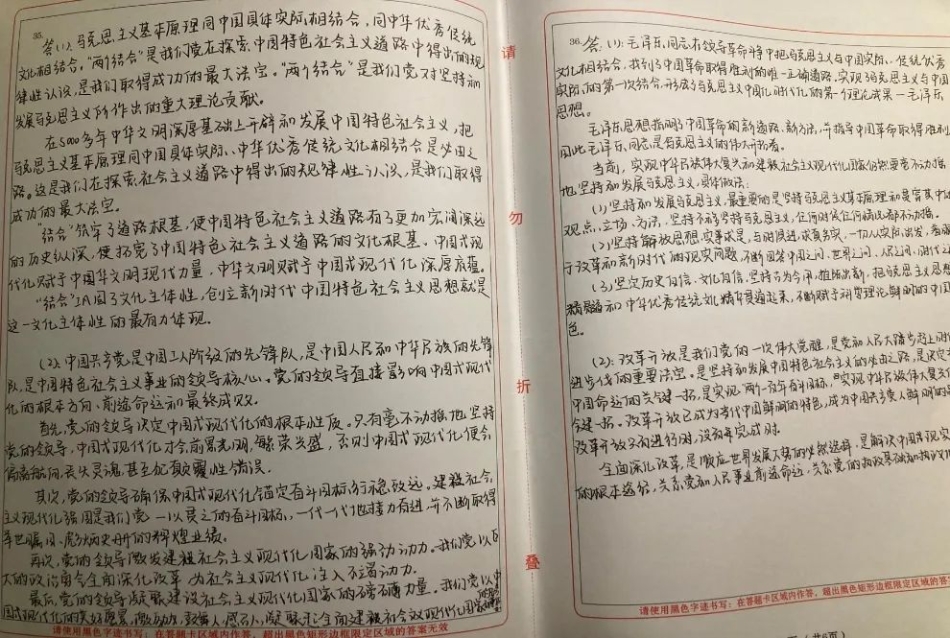 35.
答(1). 马克思主义基本原理同中国具体实际相结合，同中华优秀传统
文化相结合。"两个结合"是我们党在探索中国特色社会主义道路中得出的规
律性认识，是我们取得成功的最大法宝。"两个结合"是我们党对坚持和
发展马克思主义所作出的重大理论贡献。
在5000多年中华文明深厚基础上开辟和发展中国特色社会主义，把
马克思主义基本原理同中国具体实际、中华优秀传统文化相结合是必由之
路。这是我们在探索社会主义道路中得出的规律性认识，是我们取得
成功的最大法宝。
"结合"筑牢了道路根基，使中国特色社会主义道路有了更加宏阔深远
的历史纵深，使拓宽了中国特色社会主义道路的文化根基。中国式现
代化赋予中国华文明现代力量，中华文明赋予中国式现代化深厚底蕴。
"结合"巩固了文化主体性，创立新时代中国特色社会主义思想就是
这一文化主体性的最有力体现。
(2). 中国共产党是中国工人阶级的先锋队，是中国人民和中华民族的先锋
队，是中国特色社会主义事业的领导核心。党的领导直接影响中国式现代
化的根本方向、前途命运和最终成败。
首先，党的领导决定中国式现代化的根本性质。只有毫不动摇地坚持
党的领导，中国式现代化才会前景光明，繁荣兴盛，否则中国式现代化便会
偏离航向，丧失灵魂甚至犯颠覆性错误。
其次，党的领导确保中国式现代化锚定奋斗目标，行稳致远。建设社会
主义现代化强国是我们党一以贯之的奋斗目标，一代一代地接力奋进，并不断取得
举世瞩目、彪炳史册的辉煌业绩。
再次，党的领导激发建设社会主义现代化国家的强劲动力。我们党以巨
大的政治勇气全面深化改革，为社会主义现代化注入不竭动力。
最后，党的领导凝聚建设社会主义现代化国家的磅礴力量。我们党以中
国式现代化的美好愿景，激励人、鼓舞人、感召人，凝聚起全面建设社会主义现代化国家
请使用黑色字迹书写；在答题卡区域内作答，超出黑色矩形边框限定区域的答案无效
请
勿
折
叠
36. 答：(1)：毛泽东同志在领导革命斗争中把马克思主义与中国实际、传统优秀
文化相结合，找到了中国革命取得胜利的唯一正确道路，实现马克思主义与中国
实际的第一次结合，形成了马克思主义中国化时代化的第一个理论成果—毛泽东
思想。
毛泽东思想指明了中国革命的新道路、新方法，并指导中国革命取得胜利
因此毛泽东同志是马克思主义的伟大开拓者。
当前，实现中华民族伟大复兴和建设社会主义现代化国家仍然要毫不动摇
地坚持和发展马克思主义，具体做法：
(1) 坚持和发展马克思主义，最重要的是坚持马克思主义基本原理和贯穿其中的
观点、立场、方法，坚持不移坚持马克思主义，任何时候任何情况都不动摇。
(2) 坚持解放思想、实事求是、与时俱进、求真务实，一切从实际出发，着眼
于改革和新时代的现实问题，不断回答中国之问、世界之问、人民之问、时代之
(3) 坚定历史自信、文化自信，坚持古为今用、推陈出新，把马克思主义思想
精髓和中华优秀传统文化精华贯通起来，不断赋予科学理论鲜明的中国
色。
(2)：改革开放是我们党的一次伟大觉醒，是党和人民大踏步赶上时代
进步伐的重要法宝。是坚持和发展中国特色社会主义的必由之路，是决定当代
中国命运的关键一招，是实现"两个一百年"奋斗目标，即实现中华民族伟大复兴的
关键一招。改革开放已成为当代中国鲜明的特色，成为中国共产党人鲜明的
改革开放只有进行时，没有完成时。
全面深化改革，是顺应世界发展大势的必然选择，是解决中国现实
的根本途径，关系党和人民事业前途命运，关系党的执政基础和执政地
请使用黑色字迹书写；在答题卡区域内作答，超出黑色矩形边框限定区域的答